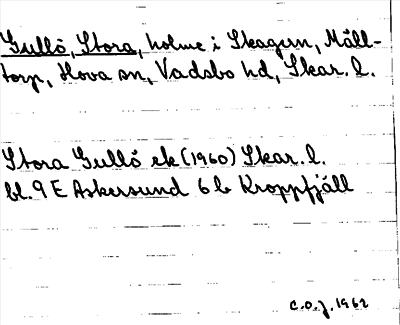 Gullö, Stora, holme i Skagern, Måll-
torp, Hova sn, Vadsbo hd, Skar. l.
Stora Gullö ek (1960) Skar. l.
bl. 9 E Askersund 6 b Kroppfjäll
C.O.J. 1962